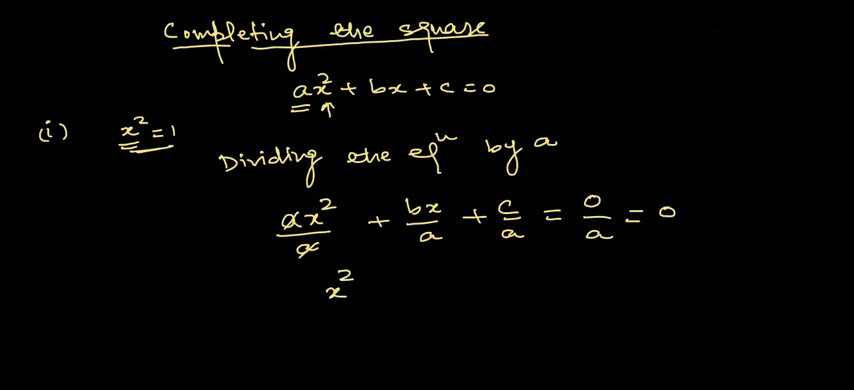 Completing the square
ax² + bx + c = 0
(i) x² = 1
Dividing the eqⁿ by a
ax²/a + bx/a + c/a = 0/a = 0
x²